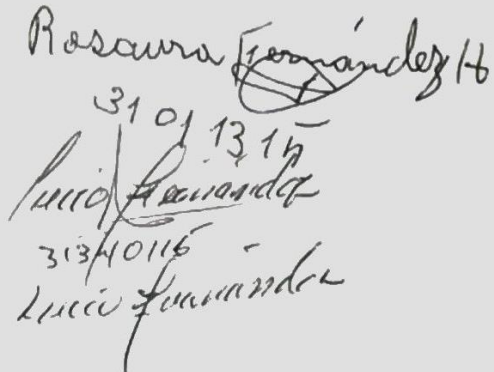 Rosaura Fernández H
31 01 13 15
Lucía Fernández
31340115
Lucía Fernández